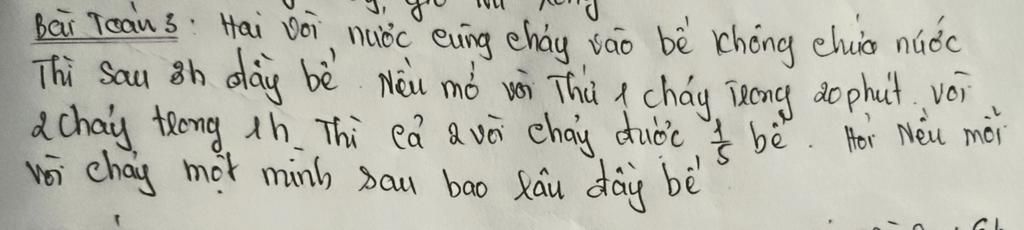 Bài Toán 3: Hai vòi nước cùng chảy vào bể không chứa nước
Thì sau 3h đầy bể. Nếu mở vòi Thứ 1 chảy trong 20 phút. vòi
2 chảy trong 1h Thì cả 2 vòi chảy được 1/5 bể. Hỏi Nếu mỗi
vòi chảy một mình sau bao lâu đầy bể